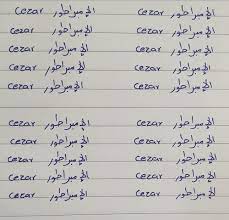 cezar الإمبراطور cezar الإمبراطور
cezar الإمبراطور cezar الإمبراطور
cezar الإمبراطور cezar الإمبراطور
cezar الإمبراطور cezar الإمبراطور
cezar الإمبراطور cezar الإمبراطور
cezar الإمبراطور cezar الإمبراطور
cezar الإمبراطور cezar الإمبراطور
cezar الإمبراطور cezar الإمبراطور
cezar الإمبراطور cezar الإمبراطور
cezar الإمبراطور cezar الإمبراطور